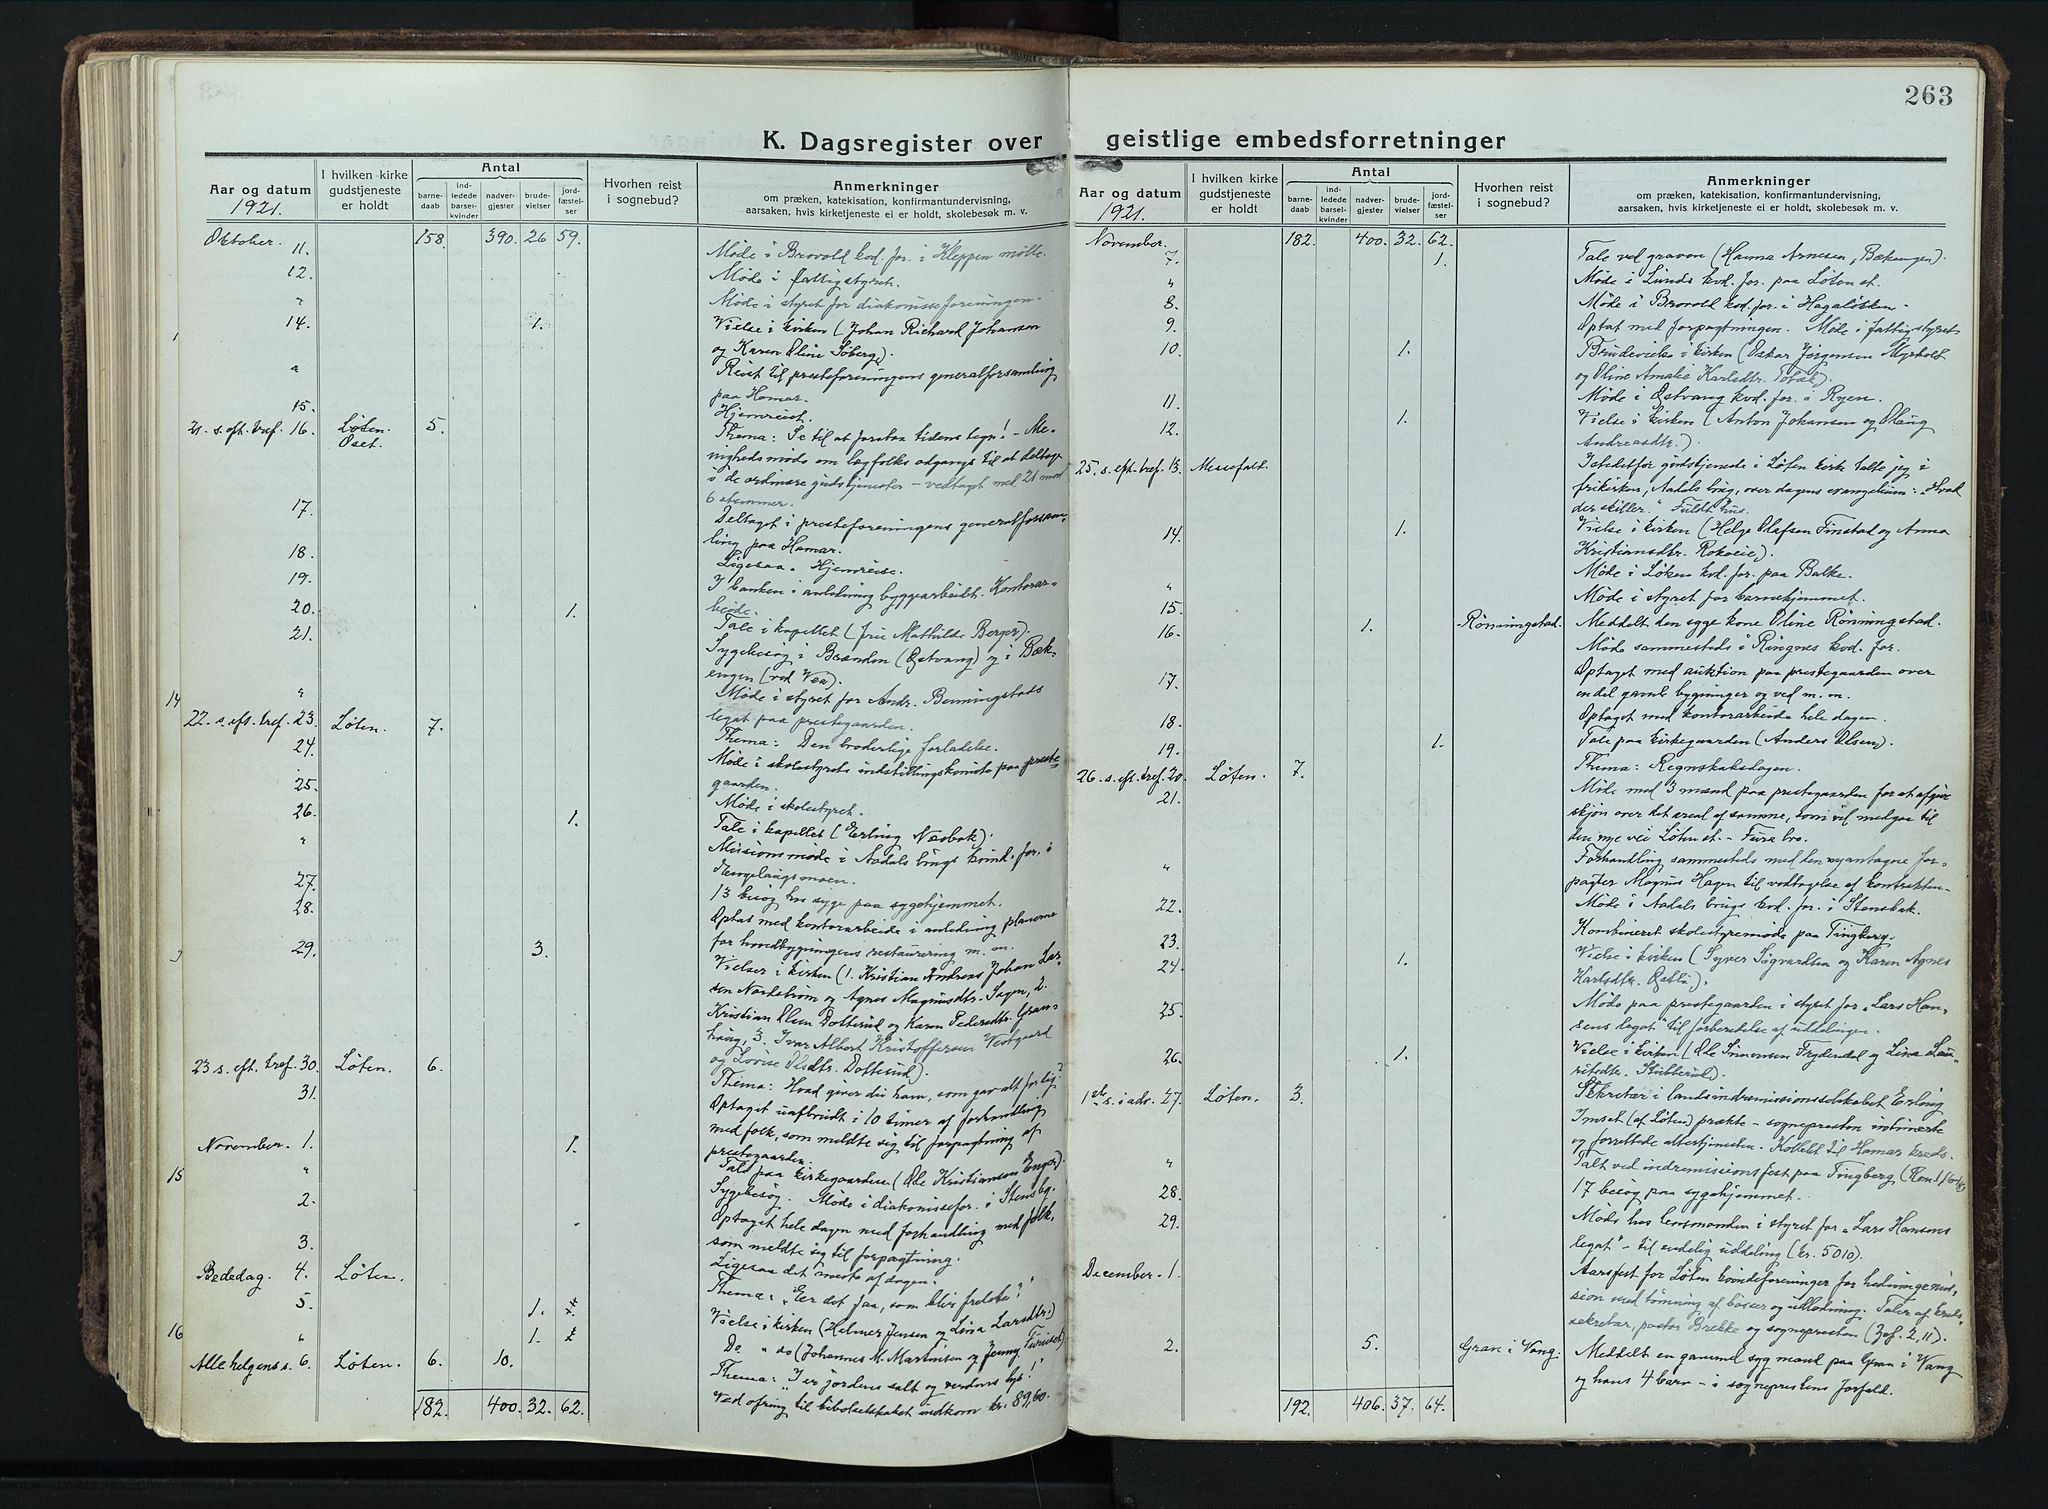 263
K. Dagsregister over
Aar og datum
1921.
I hvilken kirke
gudstjeneste
er holdt
Antal
barne-
daab
ind-
ledede
barsel-
kvinder
nadver-
gjester
brude-
vielser
jord-
fæstel-
ser
Hvorhen reist
i sognebud?
Anmerkninger
om præken, katekisation, konfirmantundervisning,
aarsaken, hvis kirketjeneste ei er holdt, skolebesøk m. v.
Oktober. 158. 390. 26 59.
11. Møde i Brovold kvd. for. i Kleppen mølle.
12. Møde i fattigstyret.
" Møde i styret for diakonisseforeningen.
14. 1. Vielse i kirken (Johan Richard Johansen
og Karen Oline Søberg).
" Reist til presteforeningens generalforsamling
paa Hamar.
15. Hjemreist.
21. s. eft. tref. 16. Løten. 5. Thema: Se til at forstaa tidens tegn! - Me-
Oset. nighedsmøde om lægfolks adgang til at deltage
i de ordinære gudstjenester - vedtaget med 21 mod
6 stemmer.
17. Deltaget i presteforeningens generalforsam-
ling paa Hamar.
18. Ligesaa. Hjemreise.
19. I banken i anledning byggearbeidet. Kontorar-
beide.
20. 1. Tale i kapellet (frk. Mathilde Berger).
21. Sygebesøg i Brænden (Østvang) og i Bæk-
engen (ved Vea).
" Møde i styret for Andr. Benningstads
legat paa prestegaarden.
22. s. eft. tref. 23. Løten. 7. Thema: Den broderlige forladelse.
24. Møde i skolestyrets indstillingskomite paa preste-
gaarden.
25. Møde i skolestyret.
26. 1. Tale i kapellet (Erling Næbak).
" Missionsmøde i Aadals brugs kvind. for. i
Hengelaugsmoen.
27. 13 besøg hos syge paa sygehjemmet.
28. Optat med kontorarbeide i anledning planerne
for hovedbygningens restaurering m. m.
29. 3. Vielser i kirken (1. Kristian Andreas Johan Lar-
sen Nordstrøm og Agnes Magnusdtr. Sagen, 2.
Kristian Olsen Dotterud og Karen Pedersdtr. Gran-
haug, 3. Ivar Albert Kristoffersen Vestgaard
og Lovise Olsdtr. Dotterud).
23 s. eft. tref. 30. Løten. 6. Thema: Hvad giver du ham, som gav alt for dig?
31. Optaget uafbrudt i 10 timer af forhandling
med folk, som meldte sig til forpagtning af
prestegaarden.
November. 1. 1. Tale paa kirkegaarden (Ole Kristiansen Enger).
" Sygebesøg. Møde i diakonissefor. i Stensby.
2. Optaget hele dagen med forhandling med folk,
som meldte sig til forpagtning.
3. Ligesaa det meste af dagen.
Bededag. 4. Løten. Thema: "Er det faa, som blir frelste?"
5. 1. Vielse i kirken (Helmer Jensen og Lina Larsdtr.)
" 1. Do. " do (Johannes M. Martinsen og Jenny Tuniset)
Alle helgens s. 6. Løten. 6. 10. Thema: "I er jordens salt og verdens lys!"
182. 400. 32. 62. Ved ofring til bibelselskabet indkom kr. 89,60.
1
14
3
15
16
geistlige embedsforretninger
Aar og datum
1921.
I hvilken kirke
gudstjeneste
er holdt
Antal
barne-
daab
ind-
ledede
barsel-
kvinder
nadver-
gjester
brude-
vielser
jord-
fæstel-
ser
Hvorhen reist
i sognebud?
Anmerkninger
om præken, katekisation, konfirmantundervisning,
aarsaken, hvis kirketjeneste ei er holdt, skolebesøk m. v.
November. 182. 400. 32. 62.
7. 1. Tale ved graven (Hanna Arnesen, Bækengen).
" Møde i Lunds kvd. for. paa Løten st.
8. Møde i Brovold kvd. for. i Hagaløkken.
9. Optat med forpagtningen. Møde i fattigstyret.
10. 1. Brudevielse i kirken (Oskar Jørgensen Myrholt
og Oline Amalie Karlsdtr. Tobæk).
11. Møde i Østvang kvd. for. i Ryen.
12. 1. Vielse i kirken (Anton Johansen og Olaug
Andreasdtr.).
25. s. eft. tref. 13. Messefalt. Istedetfor gudstjeneste i Løten kirke talte jeg i
frikirken, Aadals brug, over dagens evangelium: "Hvad
der skiller." Fuldt hus.
14. 1. Vielse i kirken (Helge Olafsen Finstad og Anna
Kristiansdtr. Rokoeie).
" Møde i Løken kvd. for. paa Balke.
15. Møde i styret for barnehjemmet.
16. 1. Rønningstad. Meddelt den syge kone Oline Rønningstad.
Møde sammesteds i Ringnes kvd. for.
17. Optaget med auktion paa prestegaarden over
endel gamle bygninger og ved m. m.
18. Optaget med kontorarbeide hele dagen.
19. 1. Tale paa kirkegaarden (Anders Olsen).
26. s. eft. tref. 20. Løten. 7. Thema: Regnskabsdagen.
21. Møde med 3 mænd paa prestegaarden for at afgive
skjøn over det areal af samme, som vil medgaa til
den nye vei Løten st. - Fura bro.
" Forhandling sammesteds med den nyantagne for-
pagter Magnus Hagen til vedtagelse af kontrakten.
22. Møde i Aadals brugs kvd. for. i Stensbak.
23. Kombineret skolestyremøde paa Tingberg.
24. 1. Vielse i kirken (Syver Sigvardsen og Karen Agnes
Karlsdtr. Østli).
25. Møde paa prestegaarden i styret for "Lars Han-
sens legat" til forberedelse af uddelingen.
26. 1. Vielse i kirken (Ole Simensen Frydendal og Lina Lau-
ritsdtr. Stubberud).
1ste s. i adv. 27. Løten. 3. Sekretær i landsindremissionsselskabet Erling
Imset (af Løten) prækte - sognepresten intimerte
og forrettede altertjenesten. Kollekt til Hamar kreds.
" Talt ved indremissionsfest paa Tingberg (Rom. 1,16
28. 17 besøg paa sygehjemmet.
29. Møde hos lensmanden i styret for "Lars Hansens
legat" - til endelig uddeling (kr. 5010).
December. 1. Aarsfest for Løten kvindeforeninger for hedningemis-
sion med tømning af bøsser og utlodning. Taler af kreds-
sekretær, pastor Brekke og sognepresten (Zef. 2,11).
2. 5. Gran i Vang. Meddelt en gammel syg mand paa Gran i Vang
og hans 4 barn - i sognepræstens forfald.
192. 406. 37. 64.